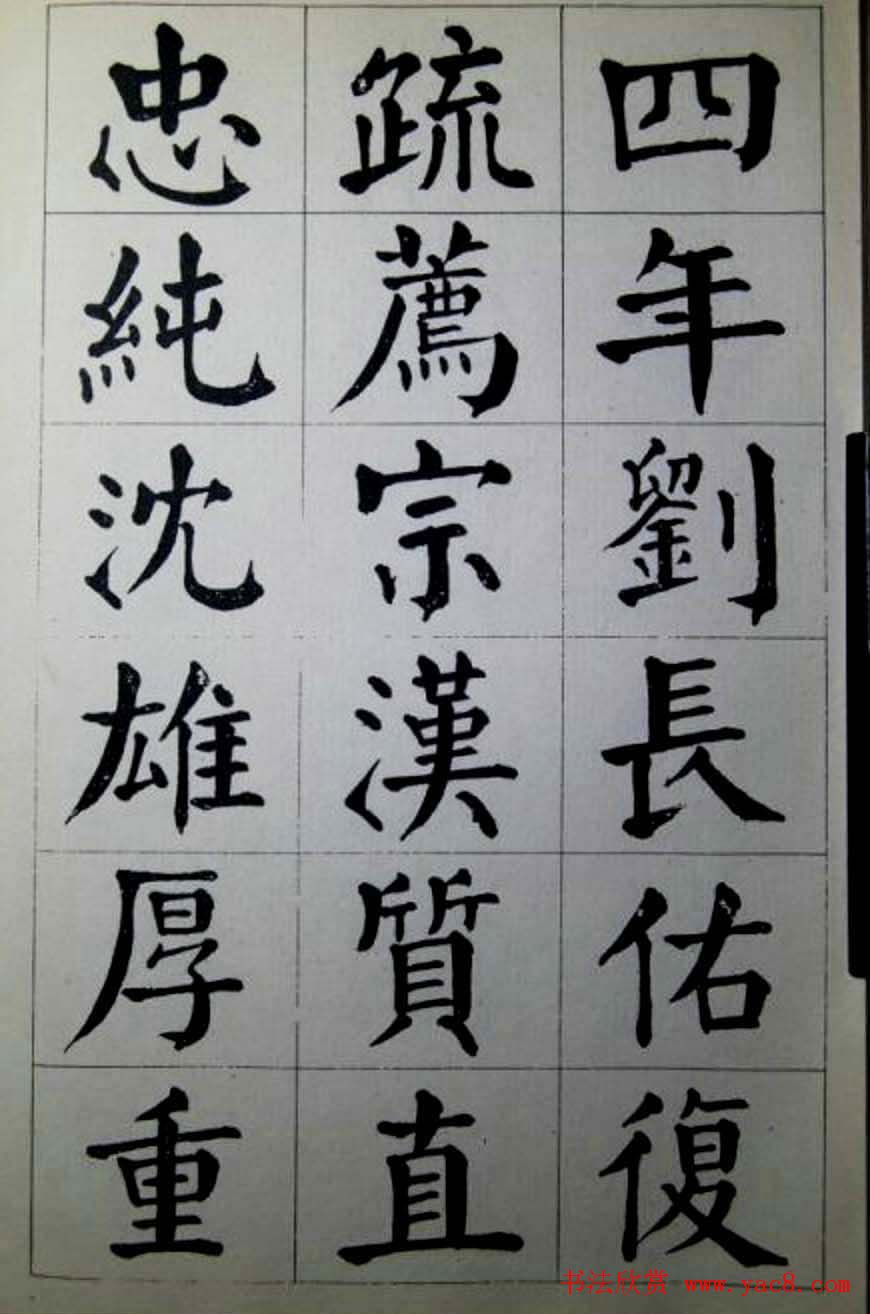 四年劉長佑復
疏薦宗漢質直
忠純沈雄厚重
书法欣赏 www.yac8.com